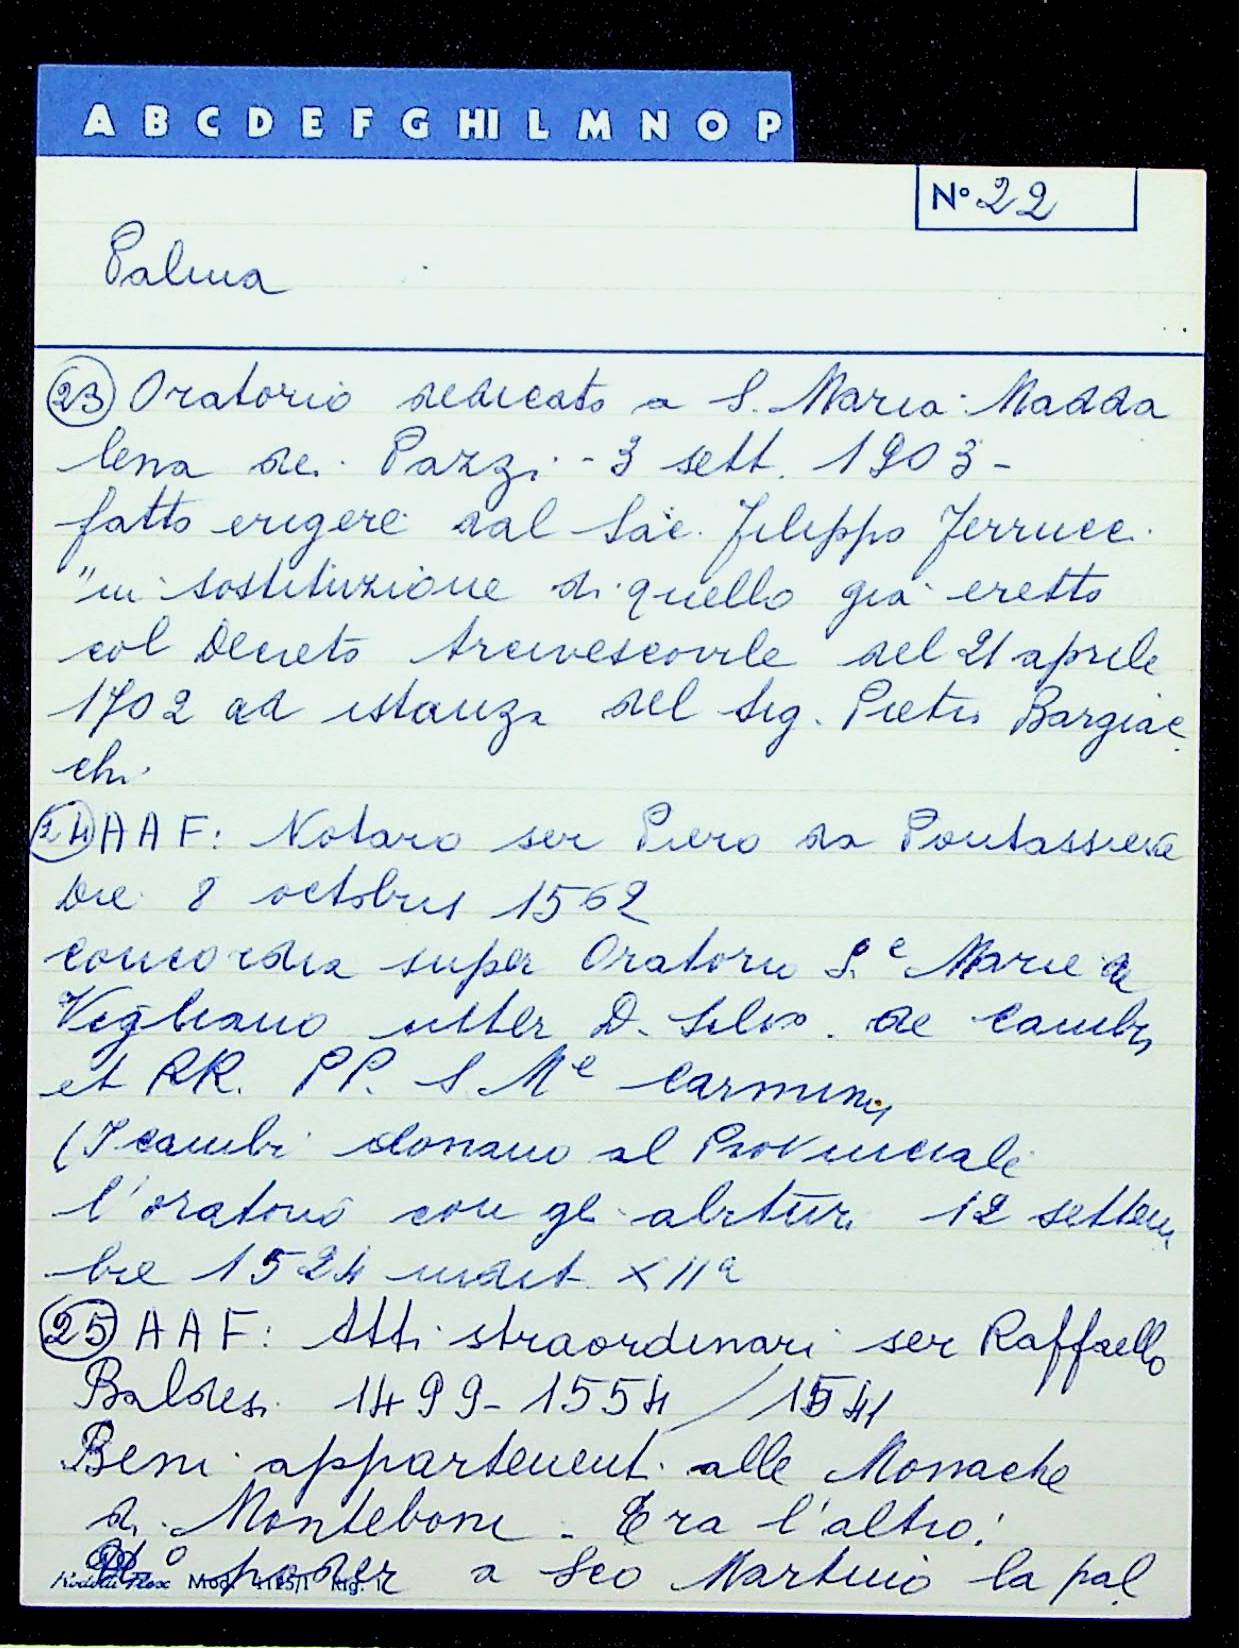 A B C D E F G HI L M N O P
N° 22
Palma
23 Oratorio dedicato a S. Maria Madda
lena dei Pazzi - 3 sett. 1903 -
fatto erigere dal Sac. Filippo Ferrucci
"in sostituzione di quello già eretto
col Decreto Arcivescovile del 21 aprile
1702 ad istanza del Sig. Pietro Bargiac
chi
24 AAF: Notaro ser Piero da Pontassieve
Die 8 octobris 1562
Concordia super Oratorio S.e Marie de
Vegliano inter D. de Cambi
et RR. PP. S. Me Carmini
(I Cambi donano al Provinciale
l'oratorio con gli 12 settem
bre 1524 indict. XIIa
25 AAF: Atti straordinari ser Raffaello
Baldesi 1499-1554 / 1541
Beni appartenenti alle Monache
di Monteboni - Era l'altro:
poder a Sco Martino la pal
Mod. 1125/1 Rig. 1